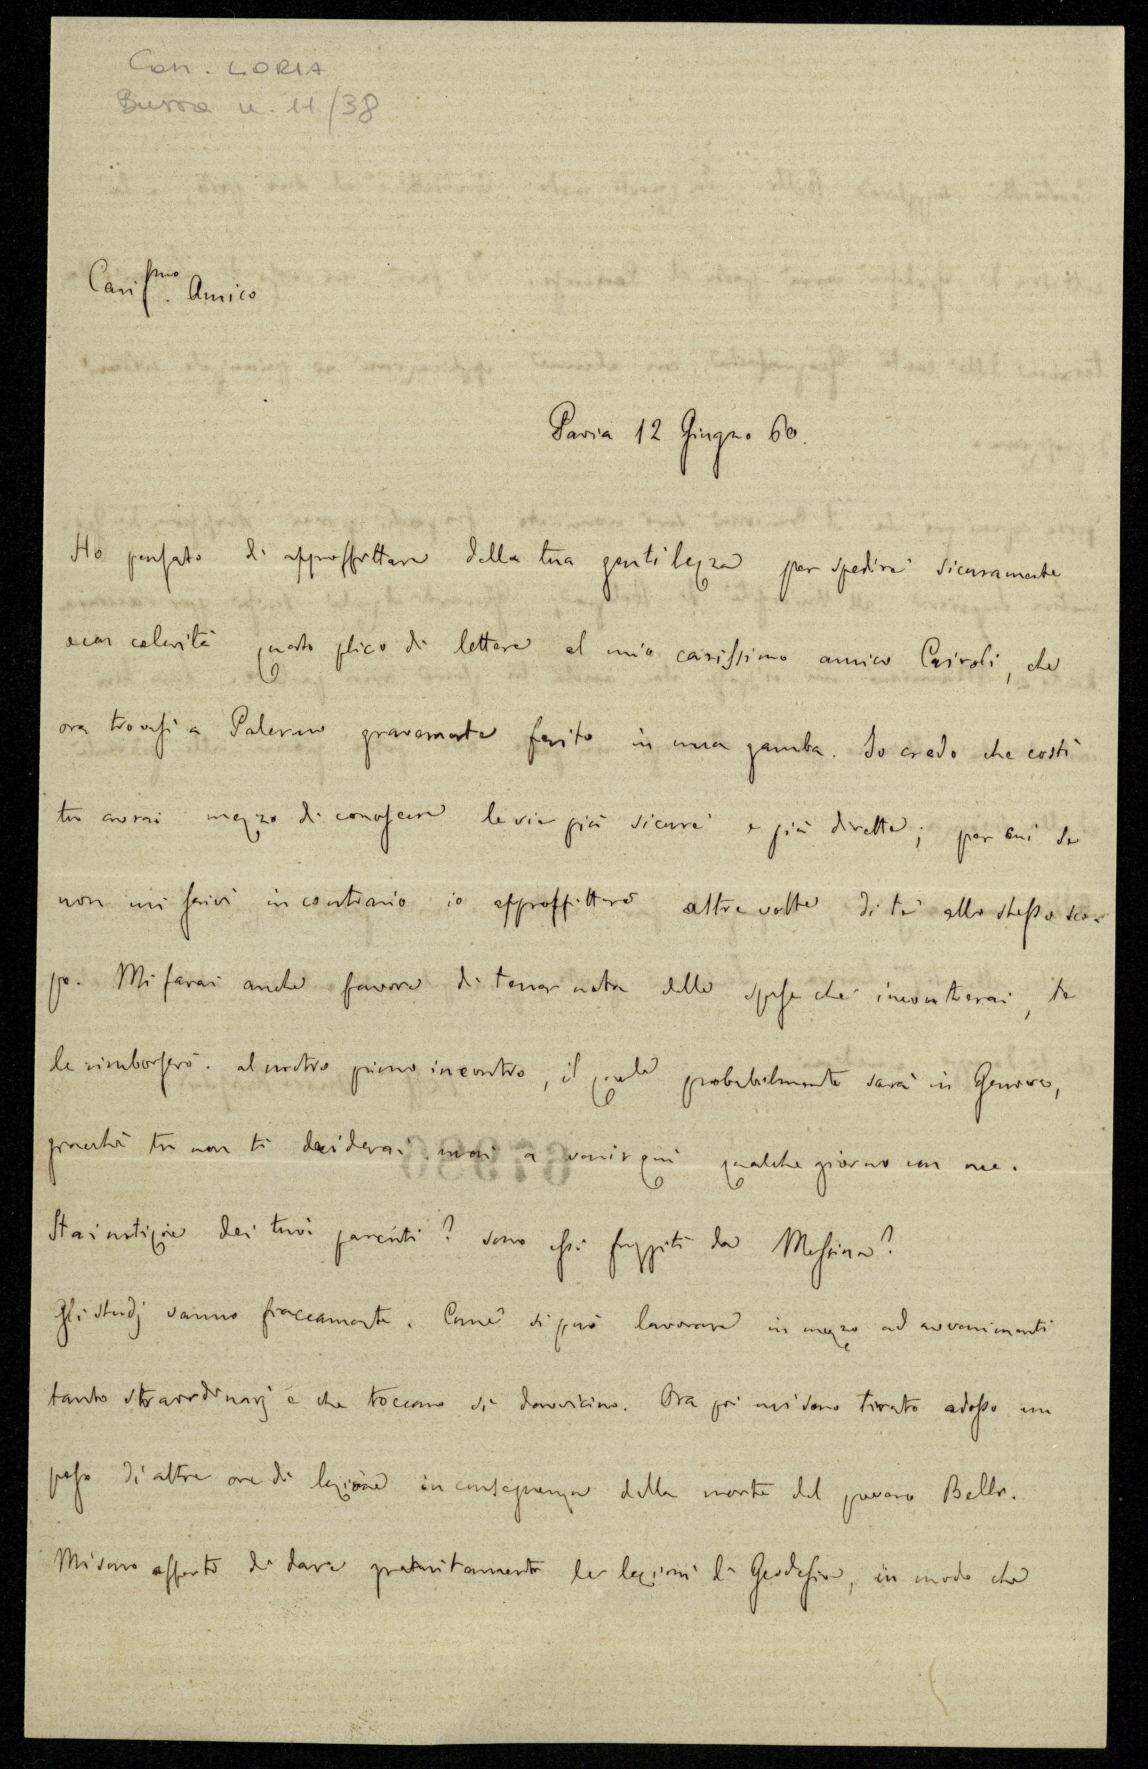 Con. LORIA
Busta n. 11/38
Carissmo. Amico
Pavia 12 Giugno 60.
Ho pensato di approffittare della tua gentilezza per spedire sicuramente
e con celerità questo plico di lettere al mio carissimo amico Cairoli, che
ora trovasi a Palermo gravemente ferito in una gamba. Io credo che costì
tu avrai mezzo di conoscere le vie più sicure e più dirette; per cui se
non mi scrivi in contrario io approffitterò altre volte di te allo stesso sco-
po. Mi farai anche favore di tener nota delle spese che incontrerai, te
le rimborserò al nostro primo incontro, il quale probabilmente sarà in Genova,
giacchè tu non ti deciderai mai a venir qui qualche giorno con me.
Hai notizie dei tuoi parenti? sono essi fuggiti da Messina?
Gli studj vanno fiaccamente. Come si può lavorare in mezzo ad avvenimenti
tanto straordinarj e che toccano sì davvicino. Ora poi mi sono tirato adosso un
peso di altre ore di lezione in conseguenza della morte del povero Bello.
Mi sono offerto di dare gratuitamente le lezioni di Geodesia, in modo che
67986